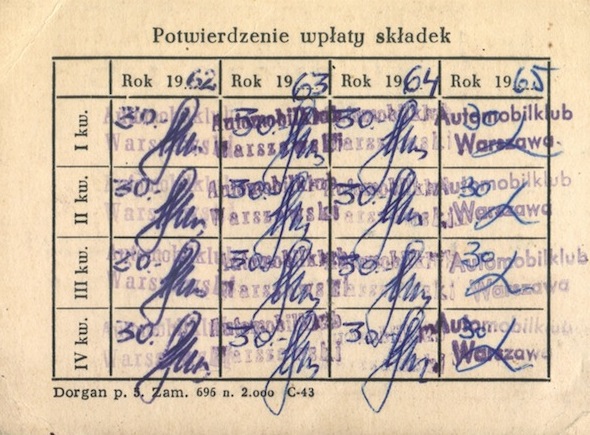 Potwierdzenie wpłaty składek
Rok 1962 Rok 1963 Rok 1964 Rok 1965
I kw. 30.- 30.- 30.- 30
Automobilklub Automobilklub Automobilklub Automobilklub
Warszawski Warszawski Warszawski Warszawa
II kw. 30.- 30.- 30.- 30
Automobilklub Automobilklub Automobilklub Automobilklub
Warszawski Warszawski Warszawski Warszawa
III kw. 30.- 30.- 30.- 30
Automobilklub Automobilklub Automobilklub Automobilklub
Warszawski Warszawski Warszawski Warszawa
IV kw. 30.- 30.- 30.- 30
Automobilklub Automobilklub Automobilklub
Warszawski Warszawski Warszawa
Dorgan p. 5. Zam. 696 n. 2.000 C-43